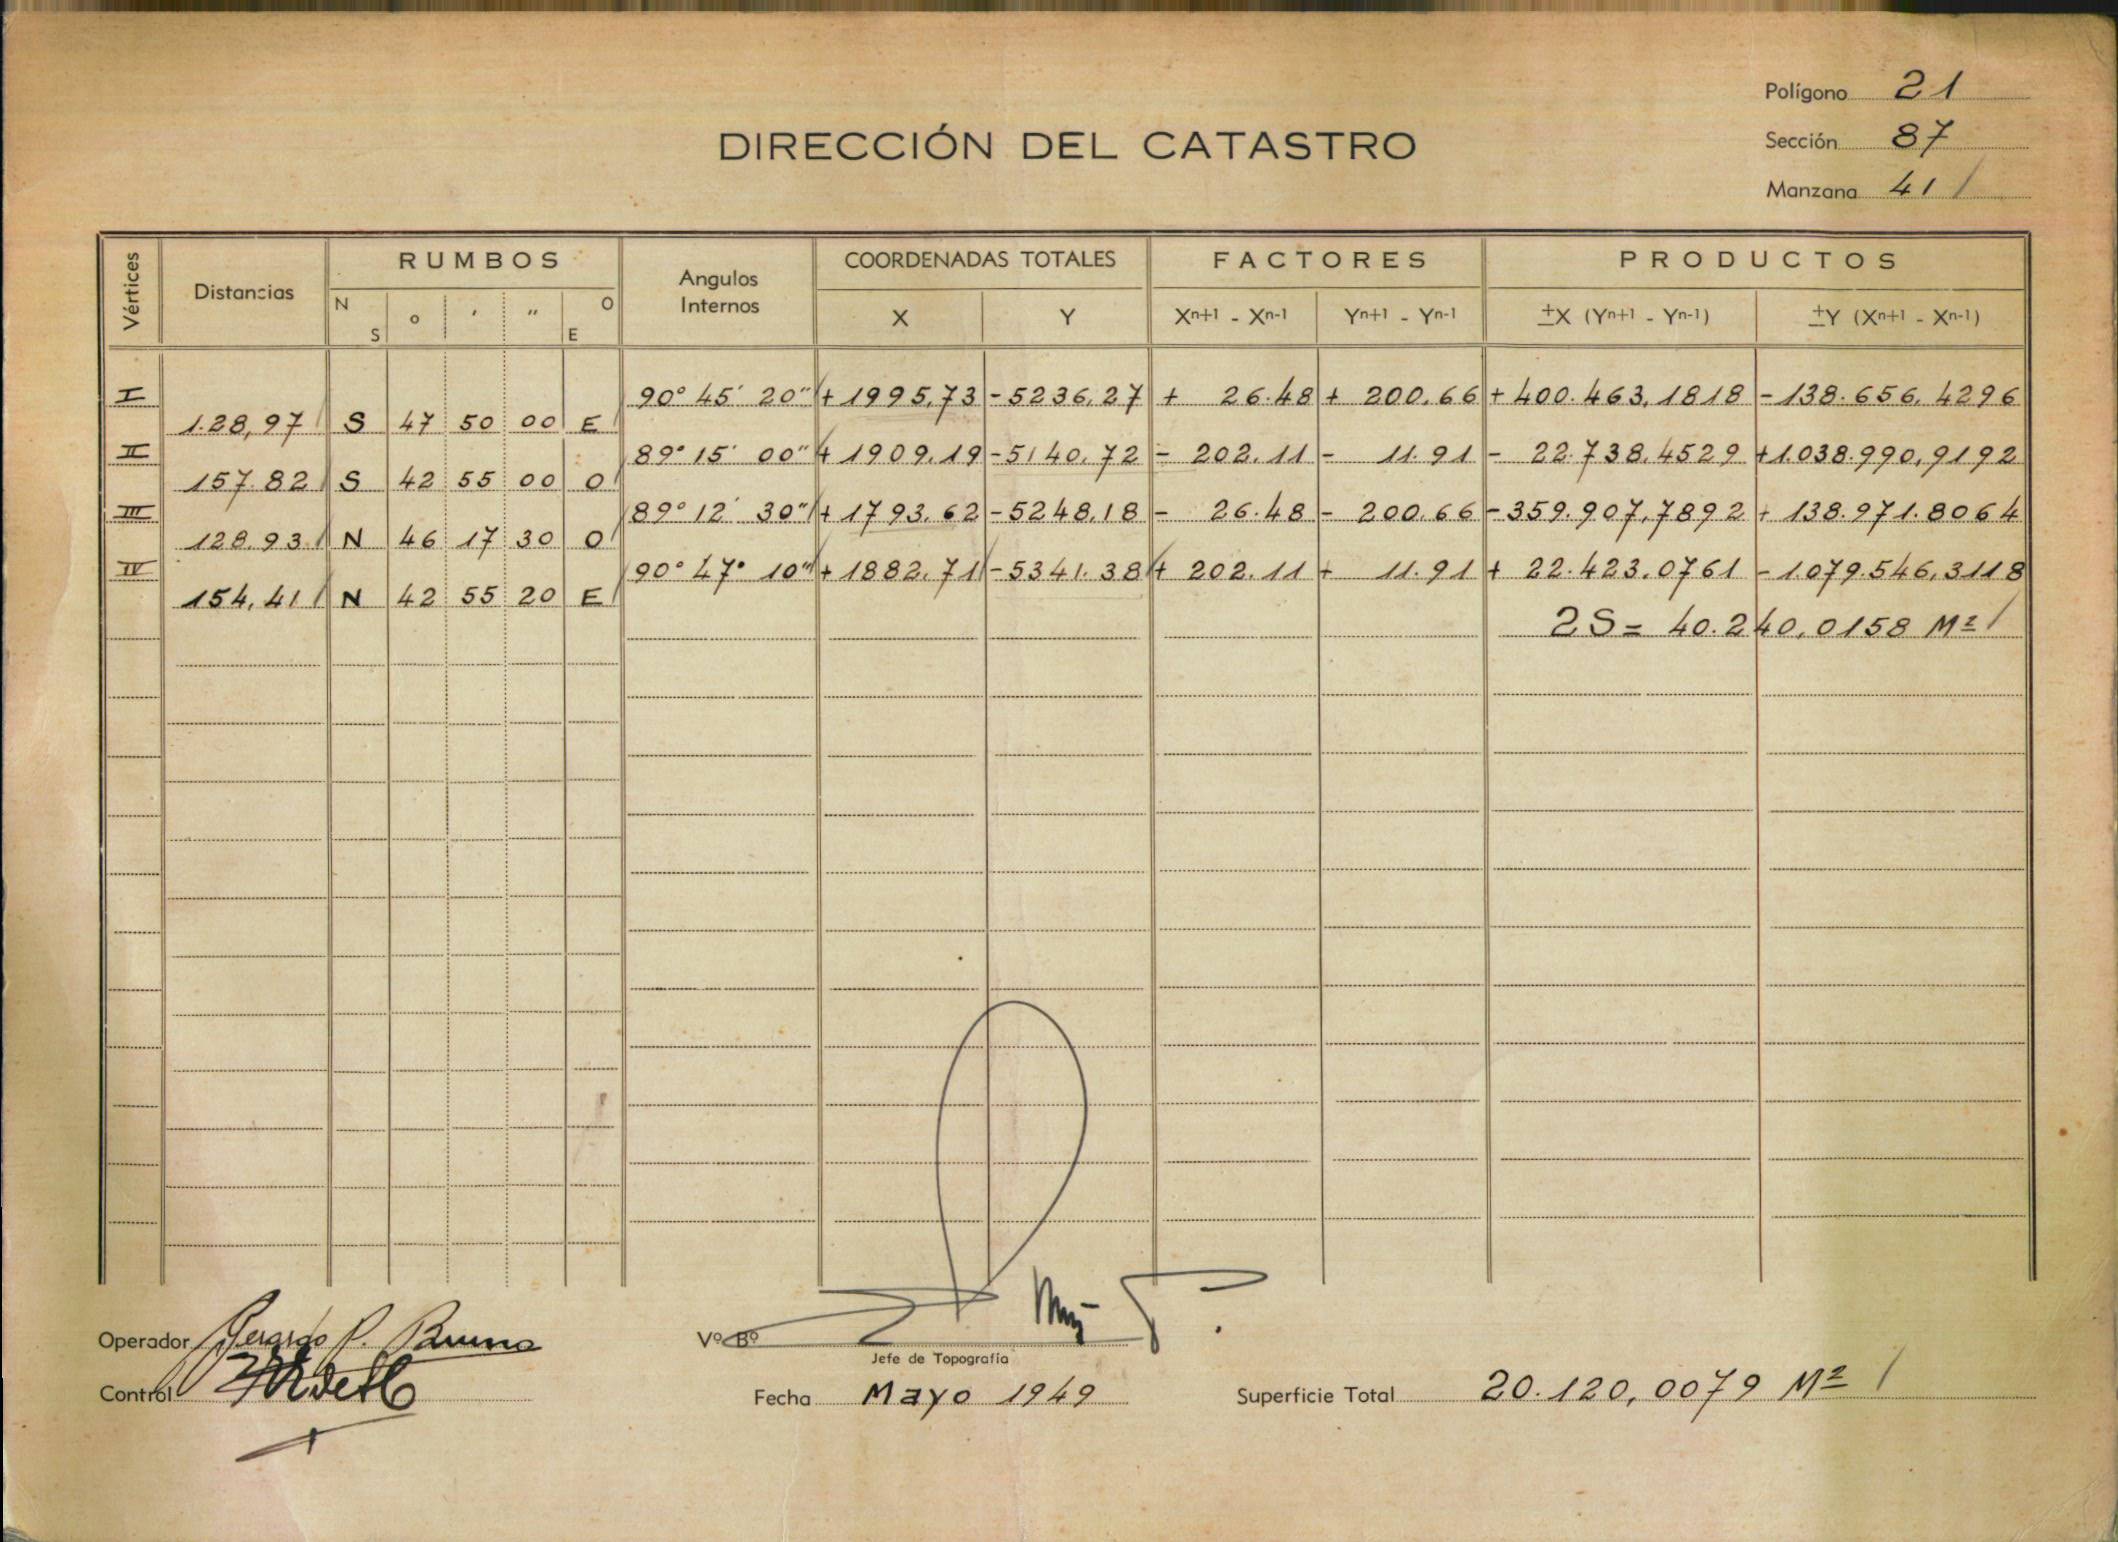 Polígono 21
DIRECCIÓN DEL CATASTRO
Sección 87
Manzana 41
Vértices Distancias RUMBOS Angulos Internos COORDENADAS TOTALES FACTORES PRODUCTOS
N S ° ' " O E X Y Xn+1 - Xn-1 Yn+1 - Yn-1 ±X (Yn+1 - Yn-1) ±Y (Xn+1 - Xn-1)
I 90° 45' 20" + 1995,73 -5236,27 + 26.48 + 200.66 +400.463,1818 -138.656,4296
128,97 S 47 50 00 E
II 89° 15' 00" + 1909.19 -5140,72 - 202.11 - 11.91 - 22.738.4529 +1.038.990,9192
157.82 S 42 55 00 O
III 89° 12' 30" + 1793.62 -5248.18 - 26.48 - 200.66 -359.907,7892 + 138.971.8064
128.93 N 46 17 30 O
IV 90° 47° 10" + 1882.71 -5341.38 + 202.11 + 11.91 + 22.423.0761 -1.079.546,3118
154,41 N 42 55 20 E
2S = 40.240,0158 M²
Operador Gerardo P. Bruno Vº Bº
Jefe de Topografía
Control Fecha Mayo 1949 Superficie Total 20.120,0079 M²